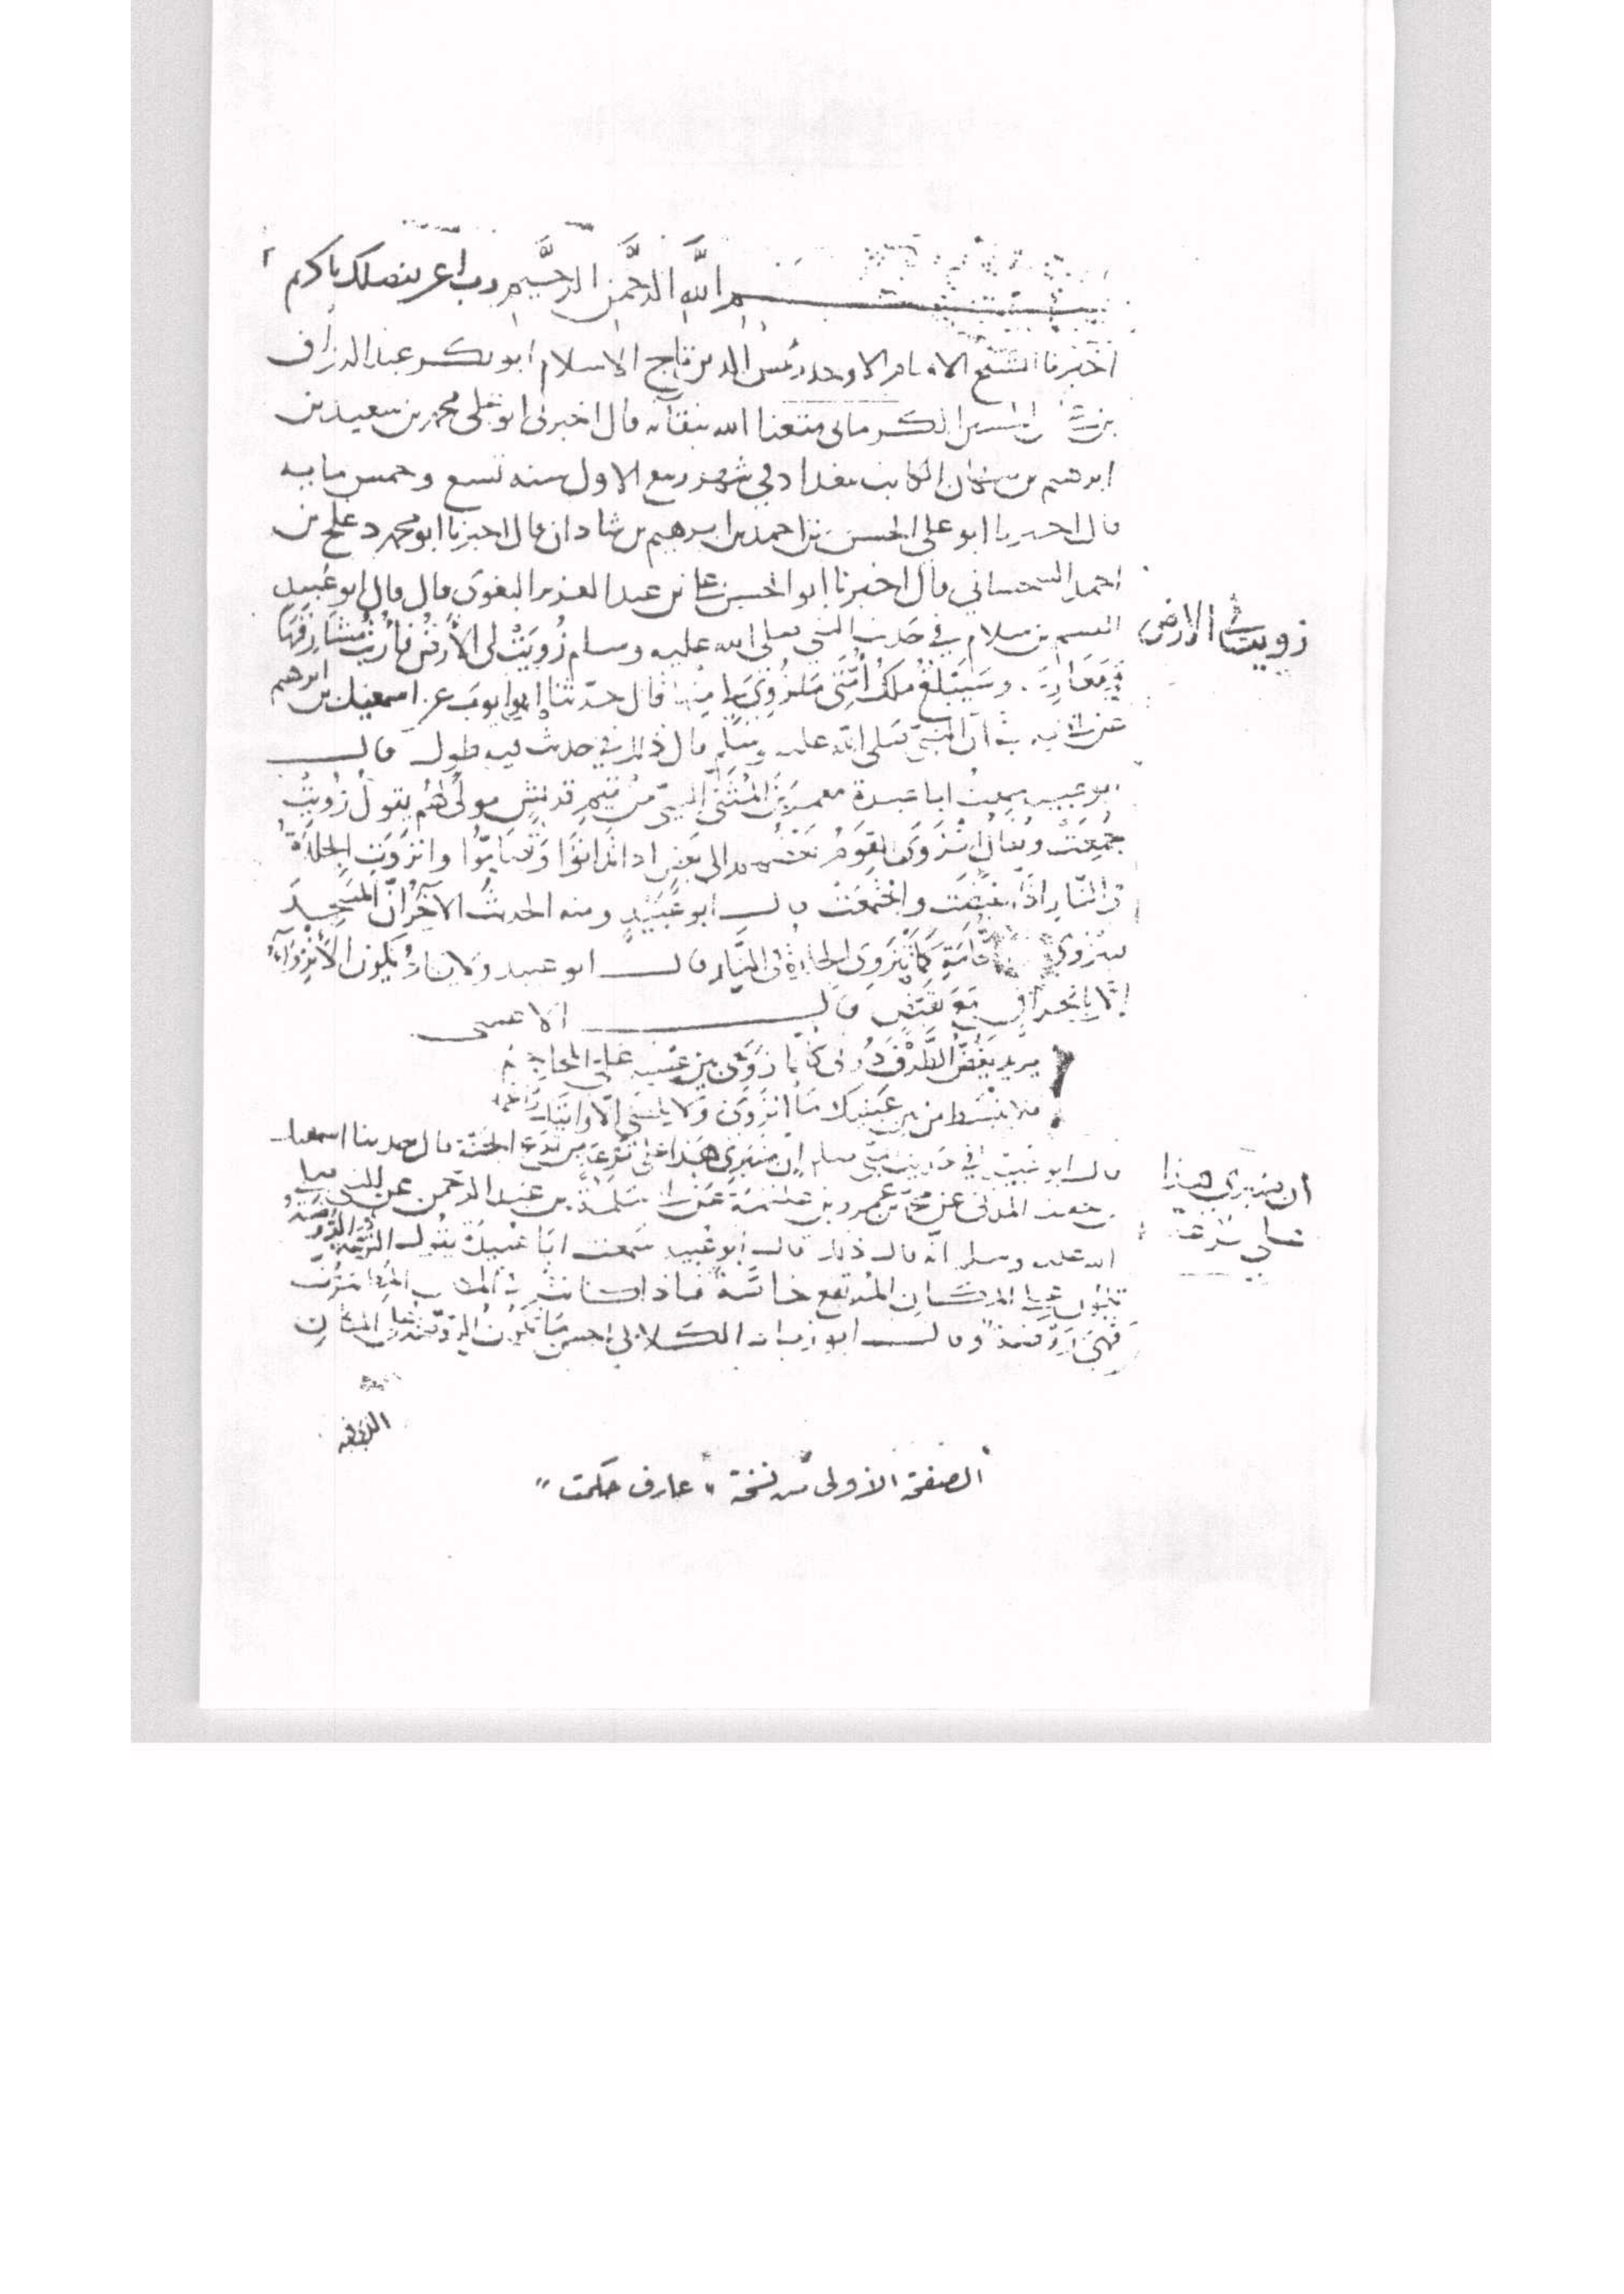 بسم الله الرحمن الرحيم رب اعن بفضلك يا كريم
اخبرنا الشيخ الامام الاوحد شمس الدين تاج الاسلام ابو بكر عبد الرزاق
بن الكرماني متعنا الله ببقائه قال اخبرني ابو علي محمد بن سعيد بن
ابرهيم بن نبهان الكاتب ببغداد في شهر ربيع الاول سنه تسع وخمس مايه
قال اخبرنا ابو علي الحسن بن احمد بن ابرهيم بن شاذان قال اخبرنا ابو محمد دعلج بن
احمد السجستاني قال اخبرنا ابو الحسن علي بن عبد العزيز البغوي قال قال ابو عبيد
القسم بن سلام في حديث النبي صلى الله عليه وسلم زُوِيَتْ لي الأرض فأُرِيتُ مشارقها
زويت لي الارض
ومغاربها وسَيَبْلُغُ مُلْكُ أُمَّتي ما زُوِيَ لي منها قال حدثنا ابو ايوب عن اسمعيل بن ابرهيم
عن أن النبي صلى الله عليه وسلم قال ذلك في حديث فيه طول قال
ابو عبيد سمعتُ ابا عبيدة معمر بن المُثَنَّى التيمي من تيم قريش مولى لهم يقول زُويت
جُمِعَتْ ويقال انزوى القوم بعضهم الى بعض اذا تدانوا وتضاموا وانزوت الجلدة
في النار اذا انقبضت واجتمعت قال ابو عبيد ومنه الحديث الآخر انّ المسجد
لينزوي من النخامة كما تنزوي الجلدة في النار قال ابو عبيد ولا يكاد يكون الانزواء
إلّا بانحراف مع تقبّض قال الاعشى
يزيد يَغُضُّ الطَّرْفَ دوني كأنما زوى بين عينيه علي المحاجم
فلا ينبسط من بين عينيك ما انزوى ولا تلقني الّا وانفك راغم
قال ابو عبيد في حديث النبي صلعم إن منبري هذا على ترعة من ترع الجنة قال حدثنا اسمعيل
ان منبري هذا
على ترعة
بن جعفر المدني عن محمد بن عمرو بن علقمة عن ابي سلمة بن عبد الرحمن عن النبي صلى
الله عليه وسلم انه قال ذلك قال ابو عبيد سمعت ابا عبيدة يقول الترعة الروضة
تكون على المكان المرتفع خاصّة فاذا كانت في المكان المطمئن
فهي روضة وقال ابو زياد الكلابي احسن ما تكون الروضة على المكان
الصفحة الاولى من نسخة "عارف حكمت"